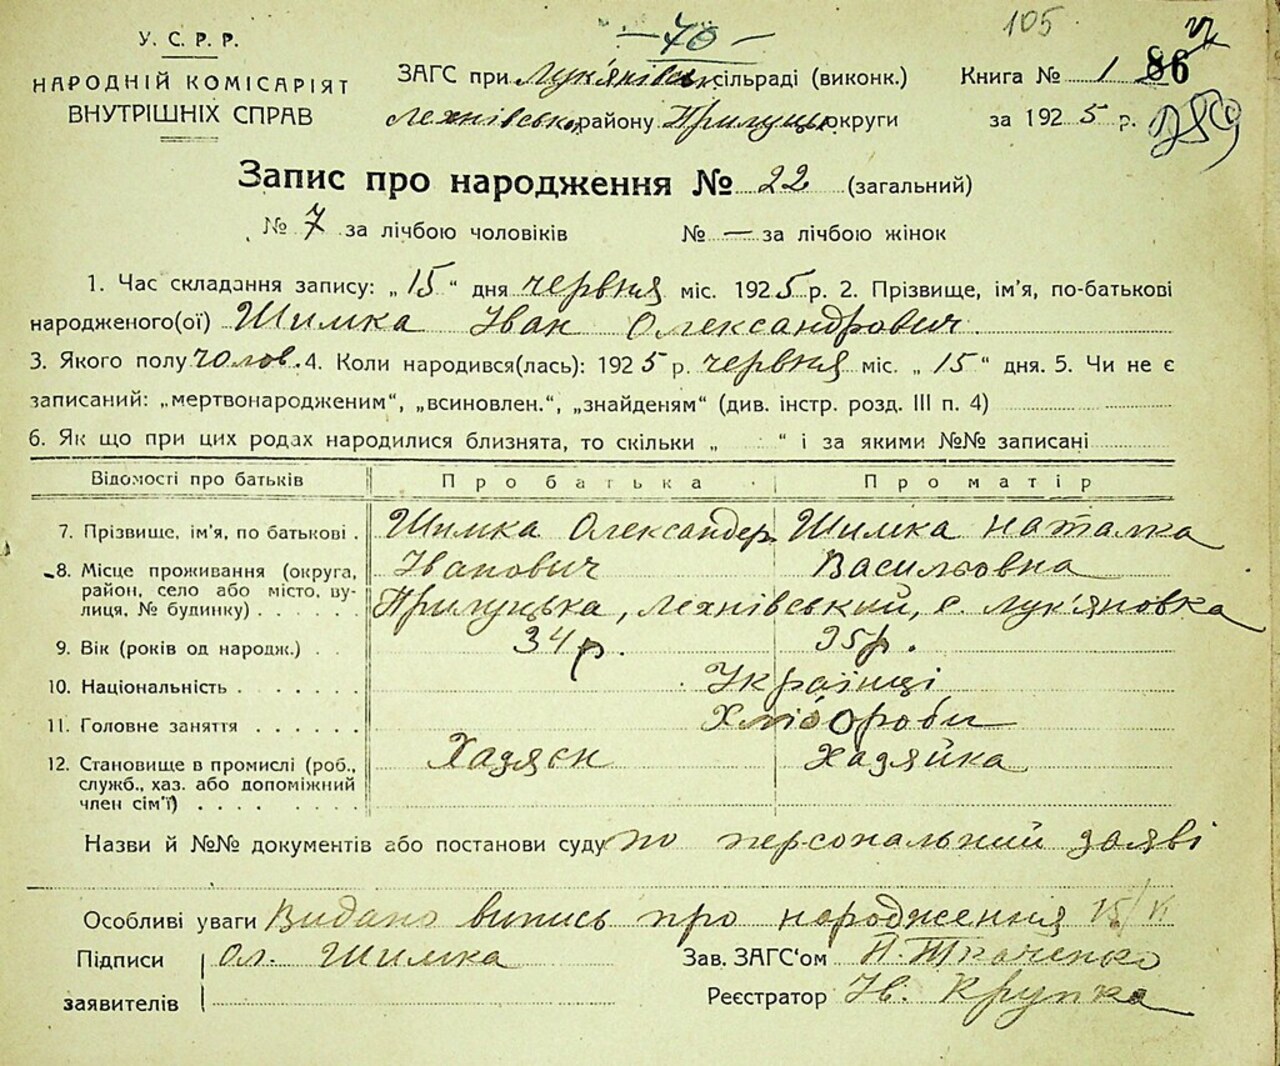 — 70 —
105
У. С. Р. Р.
НАРОДНІЙ КОМІСАРІЯТ
ВНУТРІШНІХ СПРАВ
ЗАГС при Лук'янівськ. сільраді (виконк.)
Лехнівськ. району Прилуцьк. округи
Книга № 1 86
за 1925 р.
Запис про народження № 22 (загальний)
№ 7 за лічбою чоловіків № — за лічбою жінок
1. Час складання запису: „15“ дня червня міс. 1925 р. 2. Прізвище, ім'я, по-батькові
народженого(ої) Шимка Іван Олександрович.
3. Якого полу чолов. 4. Коли народився(лась): 1925 р. червня міс. „15“ дня. 5. Чи не є
записаний: „мертвонародженим“, „всиновлен.“, „знайденям“ (див. інстр. розд. III п. 4)
6. Як що при цих родах народилися близнята, то скільки „ “ і за якими №№ записані
Відомості про батьків Про батька Про матір
7. Прізвище, ім'я, по батькові . Шимка Олександер Шимка Наталка
Іванович Василовна
8. Місце проживання (округа,
район, село або місто, ву-
лиця, № будинку) . . . . . Прилуцька, Лехнівський, с. Лук'яновка
9. Вік (років од народж.) . . 34 р. 35 р.
10. Національність . . . . . . . Українці
11. Головне заняття . . . . . . Хлібороби
12. Становище в промислі (роб., Хадяєн Хадяйка
служб., хаз. або допоміжний
член сім'ї) . . . . . . . .
Назви й №№ документів або постанови суду по персональний заяві
Особливі уваги Видано випись про народження 15/VI
Підписи Ол. Шимка Зав. ЗАГС'ом П. Ткаченко
заявителів Реєстратор Ів. Крупка